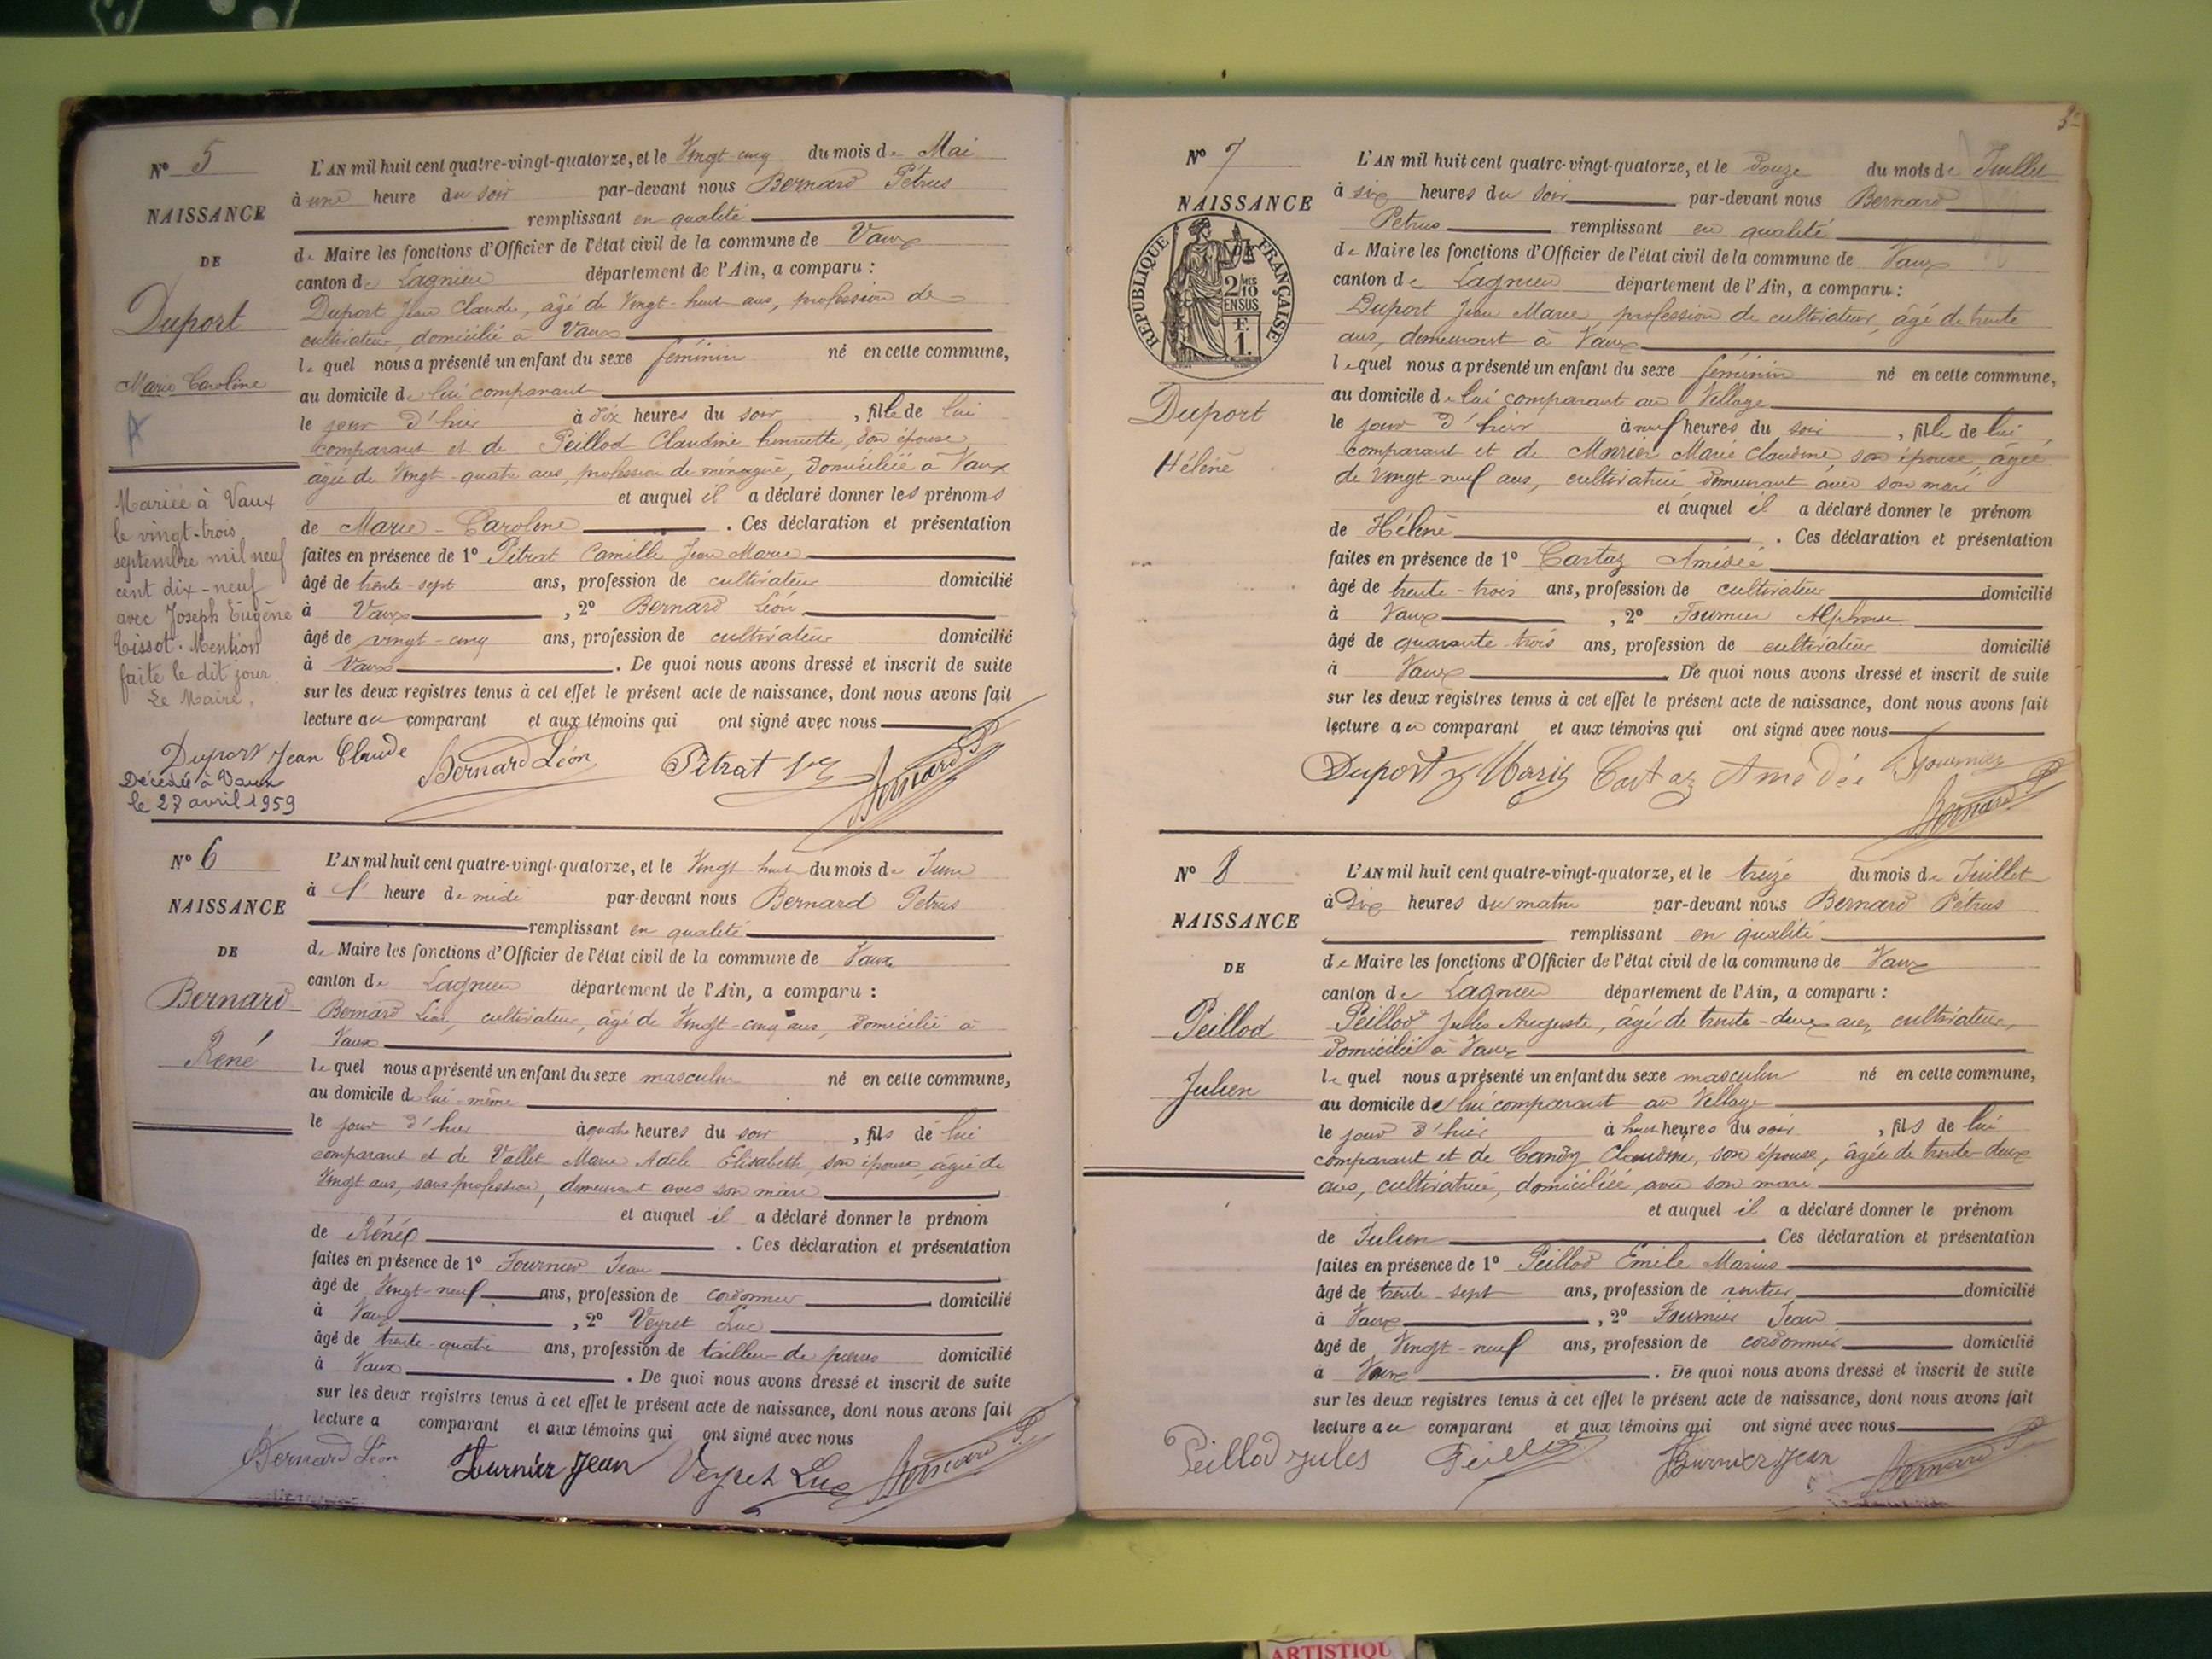 Nº 5
NAISSANCE
DE
Duport
Marie Caroline
A
Mariée à Vaux
le vingt-trois
septembre mil neuf
cent dix-neuf
avec Joseph Eugène
Tissot. Mention
faite le dit jour
Le Maire.
L'AN mil huit cent quatre-vingt-quatorze, et le Vingt-cinq du mois de Mai
à une heure du soir par-devant nous Bernard Petrus
remplissant en qualité
de Maire les fonctions d'Officier de l'état civil de la commune de Vaux
canton de Lagnieu département de l'Ain, a comparu :
Duport Jean Claude, âgé de Vingt-huit ans, profession de
cultivateur, domicilié à Vaux
lequel nous a présenté un enfant du sexe féminin né en cette commune,
au domicile de lui comparant
le jour d'hier à dix heures du soir, fille de lui
comparant et de Peillod Claudine henriette, son épouse,
âgée de Vingt-quatre ans, profession de ménagère, domiciliée à Vaux
et auquel il a déclaré donner les prénoms
de Marie-Caroline. Ces déclaration et présentation
faites en présence de 1º Pitrat Camille Jean Marie
âgé de trente-sept ans, profession de cultivateur domicilié
à Vaux, 2º Bernard Léon
âgé de vingt-cinq ans, profession de cultivateur domicilié
à Vaux. De quoi nous avons dressé et inscrit de suite
sur les deux registres tenus à cet effet le présent acte de naissance, dont nous avons fait
lecture au comparant et aux témoins qui ont signé avec nous
Duport Jean Claude Bernard Léon Pitrat Bernard P
Décédée à Vaux
le 27 avril 1959
Nº 6
NAISSANCE
DE
Bernard
René
L'AN mil huit cent quatre-vingt-quatorze, et le Vingt-huit du mois de Juin
à l' heure de midi par-devant nous Bernard Petrus
remplissant en qualité
de Maire les fonctions d'Officier de l'état civil de la commune de Vaux
canton de Lagnieu département de l'Ain, a comparu :
Bernard Léon, cultivateur, âgé de Vingt-cinq ans, domicilié à
Vaux
lequel nous a présenté un enfant du sexe masculin né en cette commune,
au domicile de lui-même
le jour d'hier à quatre heures du soir, fils de lui
comparant et de Vallet Marie Adèle Elisabeth, son épouse, âgée de
Vingt ans, sans profession, demeurant avec son mari
et auquel il a déclaré donner le prénom
de Réné. Ces déclaration et présentation
faites en présence de 1º Fournier Jean
âgé de Vingt-neuf ans, profession de cordonnier domicilié
à Vaux, 2º Veyret Luc
âgé de trente-quatre ans, profession de tailleur de pierres domicilié
à Vaux. De quoi nous avons dressé et inscrit de suite
sur les deux registres tenus à cet effet le présent acte de naissance, dont nous avons fait
lecture a comparant et aux témoins qui ont signé avec nous
Bernard Léon Fournier Jean Veyret Luc Bernard P
3e
Nº 7
NAISSANCE
DE
RÉPUBLIQUE FRANÇAISE
2/10
EN SUS
F.
1.
Duport
Hélène
L'AN mil huit cent quatre-vingt-quatorze, et le Douze du mois de Juillet
à six heures du soir par-devant nous Bernard
Petrus remplissant en qualité
de Maire les fonctions d'Officier de l'état civil de la commune de Vaux
canton de Lagnieu département de l'Ain, a comparu :
Duport Jean Marie, profession de cultivateur, âgé de trente
ans, demeurant à Vaux
lequel nous a présenté un enfant du sexe féminin né en cette commune,
au domicile de lui comparant au Village
le jour d'hier à neuf heures du soir, fille de lui
comparant et de Marie Claudine, son épouse, âgée
de Vingt-neuf ans, cultivatrice demeurant avec son mari
et auquel il a déclaré donner le prénom
de Hélène. Ces déclaration et présentation
faites en présence de 1º Cartaz Amédée
âgé de trente-trois ans, profession de cultivateur domicilié
à Vaux, 2º Fournier Alphonse
âgé de quarante-trois ans, profession de cultivateur domicilié
à Vaux. De quoi nous avons dressé et inscrit de suite
sur les deux registres tenus à cet effet le présent acte de naissance, dont nous avons fait
lecture au comparant et aux témoins qui ont signé avec nous
Duport Cartaz Amédée Fournier
Bernard P
Nº 8
NAISSANCE
DE
Peillod
Julien
L'AN mil huit cent quatre-vingt-quatorze, et le treize du mois de Juillet
à Dix heures du matin par-devant nous Bernard Pétrus
remplissant en qualité
de Maire les fonctions d'Officier de l'état civil de la commune de Vaux
canton de Lagnieu département de l'Ain, a comparu :
Peillod Jules Auguste, âgé de trente-deux ans, cultivateur,
Domicilié à Vaux
lequel nous a présenté un enfant du sexe masculin né en cette commune,
au domicile de lui comparant au Village
le jour d'hier à huit heures du soir, fils de lui
comparant et de Candy Claudine, son épouse, âgée de trente-deux
ans, cultivatrice, domiciliée avec son mari
et auquel il a déclaré donner le prénom
de Julien. Ces déclaration et présentation
faites en présence de 1º Peillod Emile Marius
âgé de trente-sept ans, profession de rentier domicilié
à Vaux, 2º Fournier Jean
âgé de Vingt-neuf ans, profession de cordonnier domicilié
à Vaux. De quoi nous avons dressé et inscrit de suite
sur les deux registres tenus à cet effet le présent acte de naissance, dont nous avons fait
lecture au comparant et aux témoins qui ont signé avec nous
Peillod Jules Peillod Fournier Jean Bernard P
ARTISTIQU